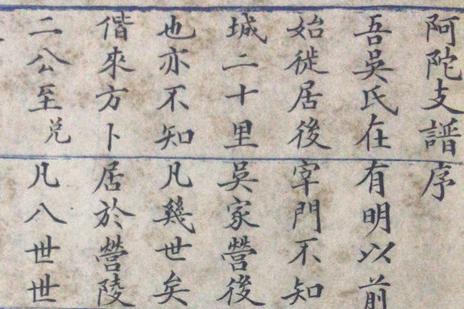 阿陀支譜序
吾吳氏在有明以前
始徙居後宰門不知
城二十里吳家營後
也亦不知凡幾世矣
偕來方卜居於營陵
二公至兑凡八世世